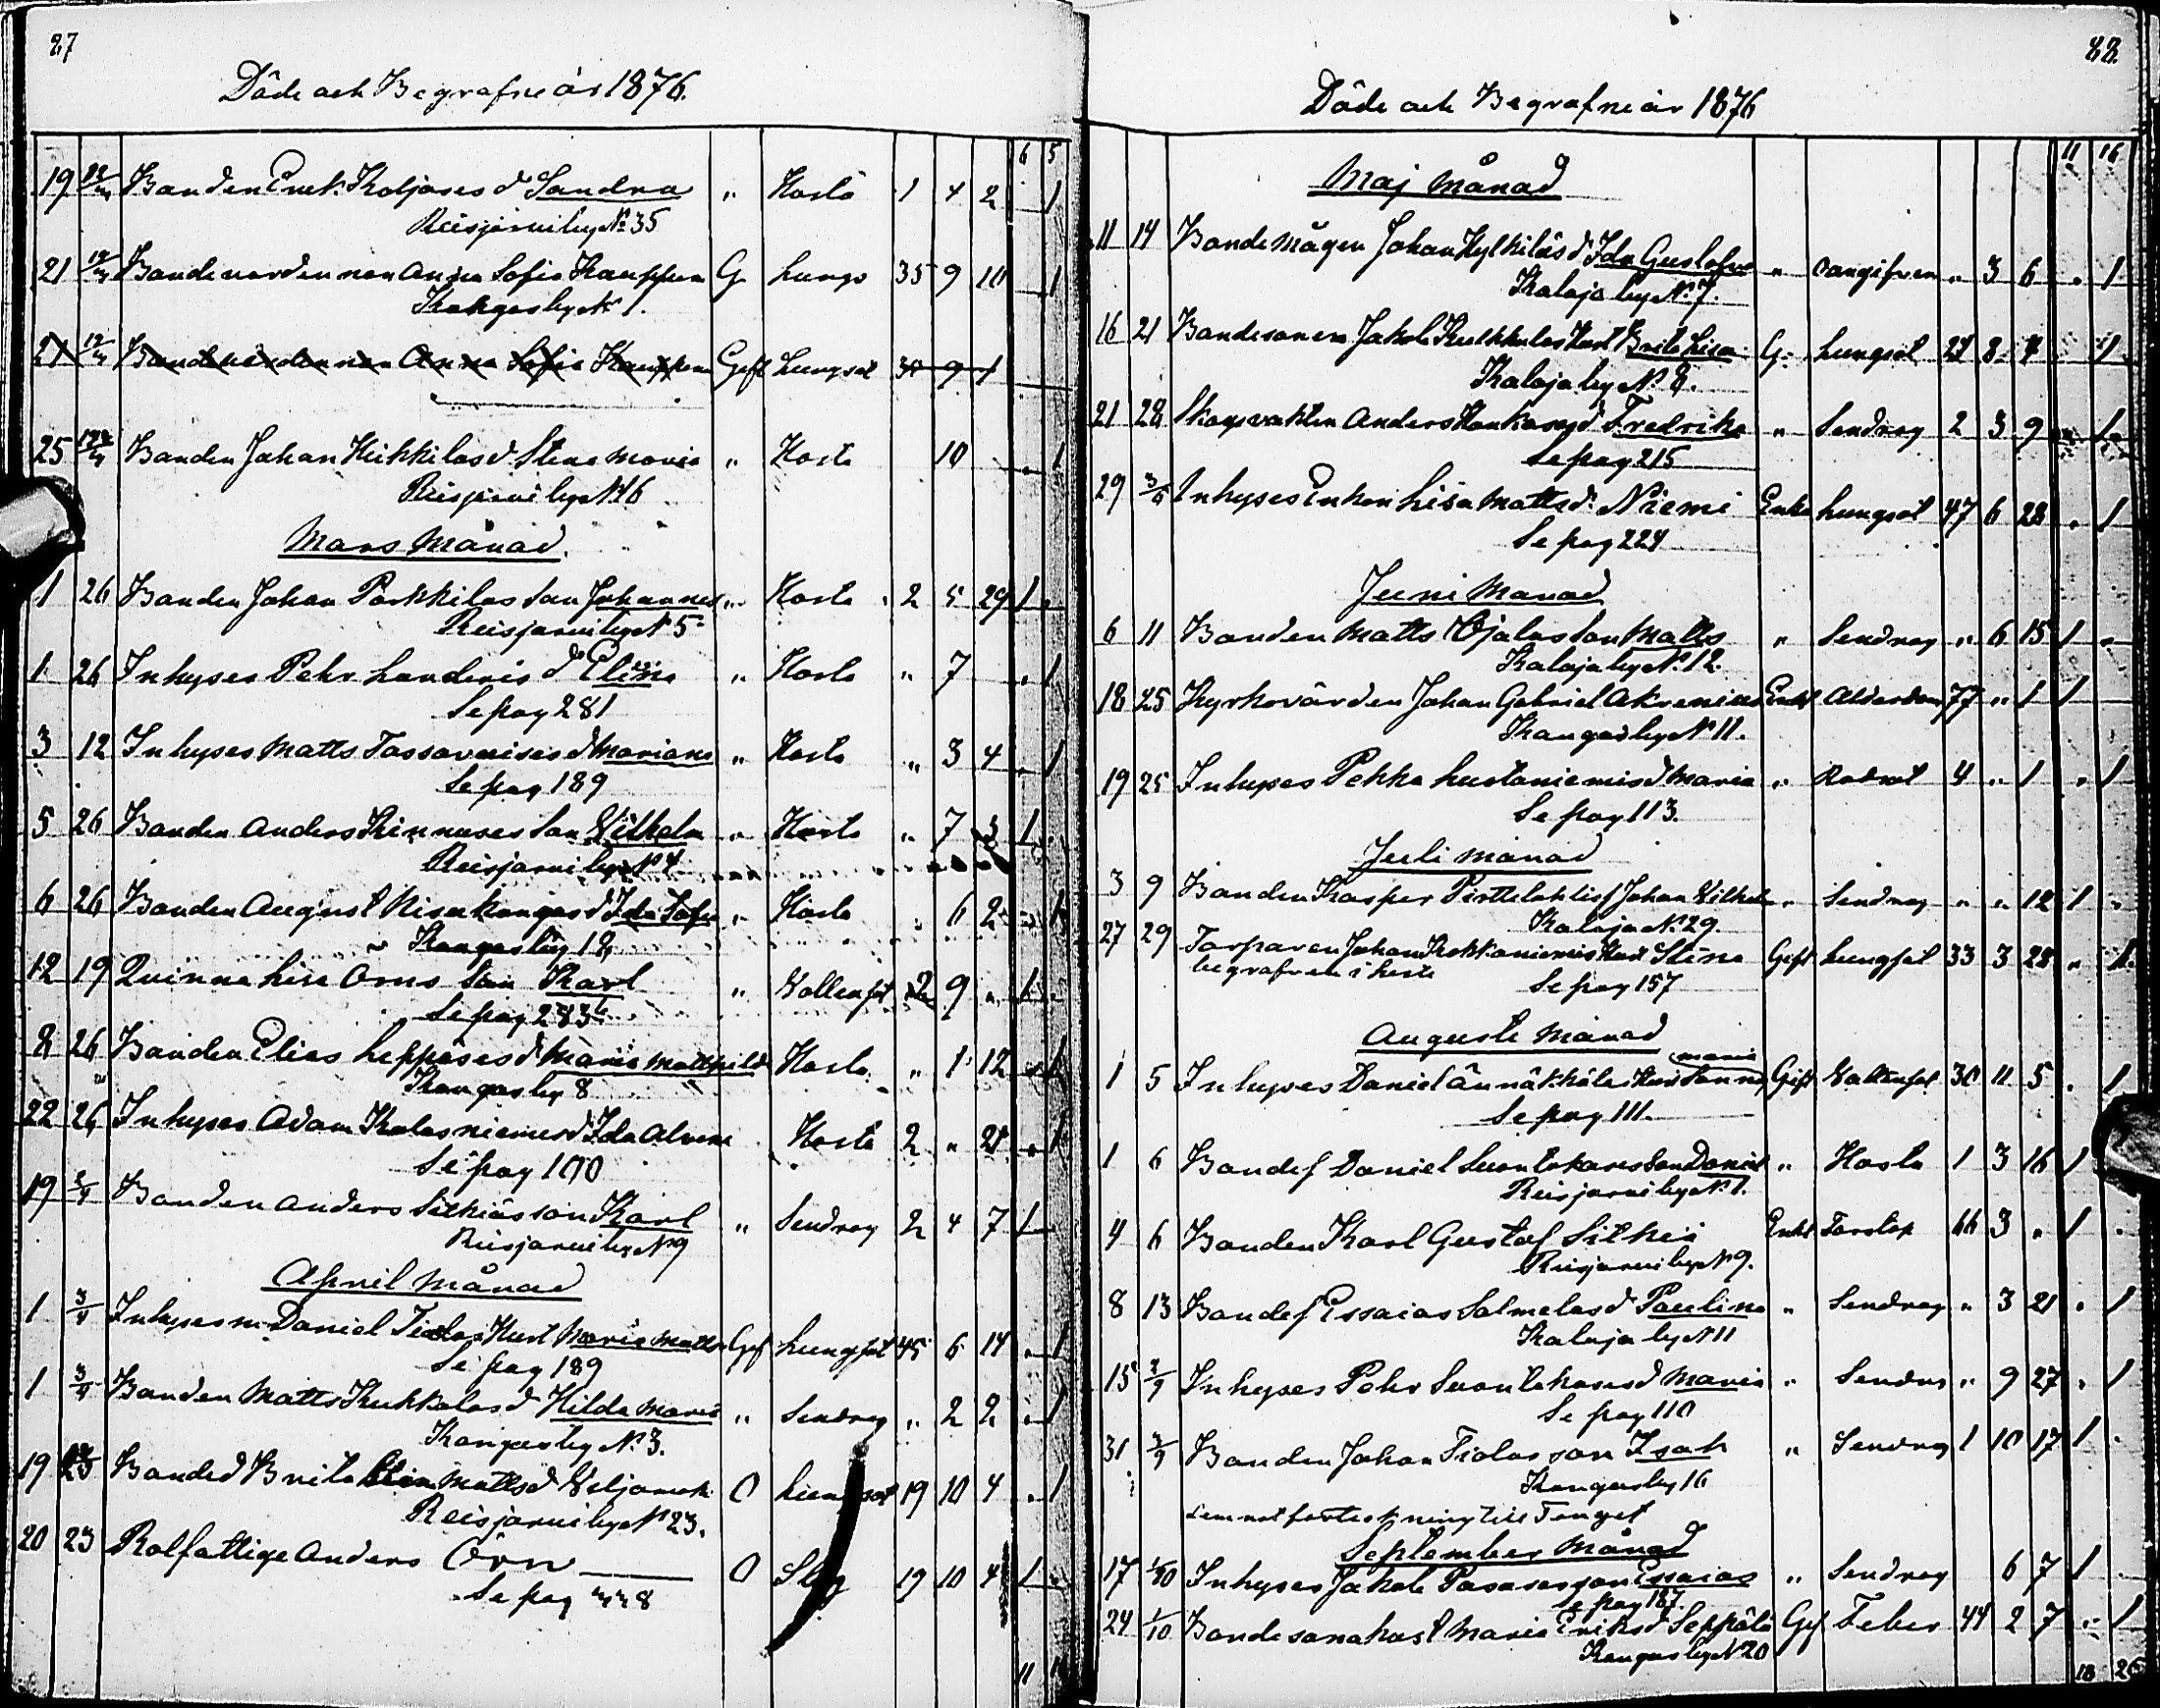 87
Döde och Begrafne år 1876.
6 5
19 12/3 Bonden Enok Koljoses d Sandra " Hosta 1 4 2 1
Reisjärvi by № 35
21 12/3 Bondevärdennan Anna Sofia Kauppinen G Lungs 35 9 10 1
Kangas by № 1.
21 12/3 Bondevärdennan Anna Sofia Kauppinen Gift Lungsot 35 9 1
25 Bonden Johan Heikkiläs d. Stina Maria " Hosta 10 1
Reisjärvi by № 16
Mars Månad.
1 26 Bonden Johan Parkkilas son Johannes " Hosta 2 5 29 1
Reisjärvi by № 5
1 26 Inhyses Pehr Landeris d Elina " Hosta " 7 1
Se pag 281
3 12 Inhyses Matts Tossavaises d Mariana " Hosta " 3 4 1
Se pag 189
5 26 Bonden Anders Kinnuses son Vilhelm " Hosta " 7 3 1
Reisjärvi by № 4
6 26 Bonden August Nisukangas d Ida Sofia " Hosta " 6 2 1
Kangas by 18
12 19 Qvinna Lisa Orns son Karl " Vattensot 2 9 " 1
Se pag 283
8 26 Bonden Elias Leppäses d Maria Mathild Hosta " 1 12 1
Kangas by 8
22 26 Inhyses Adam Kalasniemis d Ida Alvina Hosta 2 " 28 1
Se pag 100
19 2/4 Bonden Anders Silkiäs son Karl " Sendrag 2 4 7 1
Reisjärvi by № 9
April Månad
1 3/4 Inhyses m. Daniel Tiolas Hust Maria Mattsd Gif Lungsot 45 6 14 1
Se pag 189
1 3/4 Bonden Matts Kukkolas d Hilda Maria " Sendrag " 2 2 1
Kangas by № 3.
19 23 Bonded Brita Lisa Mattsd Veljamaki O Lungsot 19 10 4 1
Reisjärvi by № 23.
20 23 Rotfattige Anders Örn O 19 10 4 1
Se pag 338
11
88.
Döde och Begrafne år 1876
11 16
Maj Månad
11 14 Bondemågen Johan Kylkiläs d Ida Gustafva " oangifven " 3 6 " 1
Kalaja by № 7.
16 21 Bondesonen Jakob Kukkolas Hust Brita Lisa G. Lungsot 28 4 1
Kalaja by № 8.
21 28 Skogsvakten Anders Honkasas d Fredrika " Sendrag 2 3 9 1
Se pag 215
29 3/6 Inhyses Enkan Lisa Mattsd. Niemi Enka Lungsot 47 6 28 " 1
Se pag 224
Juni Månad
6 11 Bonden Matts Ojalas son Matts " Sendrag " 6 15 1
Kalaja by № 12.
18 25 Kyrkovärden Johan Gabriel Akrenius Enkl Ålderdom 77 " 1 1
Kangas by № 11.
19 25 Inhyses Pekka Lustaniemis d Maria " Rödsot 4 " 1 " 1
Se pag 113.
Juli månad
3 9 Bonden Kasper Pirttelahtis s Johan Vilhelm " Sendrag " " 12 1
Kalaja № 29
27 29 Torparen Johan Kokkoniemis Hust Stina Gift Lungsot 33 3 28 " 1
begrafven i
Se pag 157
Augusti månad
1 5 Inhyses Daniel Ännäkkäläs Hust Sanna Maria Gift Vattensot 30 11 5 . 1
Se pag 111.
1 6 Bondes Daniel Suontakases son Daniel " Hosta 1 3 16 1
Reisjärvi by № 1.
4 6 Bonden Karl Gustaf Silkiä Enkl 66 3 " 1
Reisjärvi by № 9.
8 13 Bondes Essaias Salmelas d Paulina " Sendrag " 3 21 . 1
Kalaja by № 11
15 3/9 Inhyses Pehr Suontakases d Maria " Sendrag " 9 27 . 1
Se pag 110
31 3/9 Bonden Johan Tiolas son Isak " Sendrag 1 10 17 1
Kangas by 16
Lemnat förteckning till Tinget
September Månad
17 1/10 Inhyses Jakob Pasases son Essaias " Sendrag 6 7 1
Se pag 187.
24 1/10 Bondesonahust Maria Eriksd Seppälä Gif Feber 44 2 7 " 1
Kangas by № 20
18 26